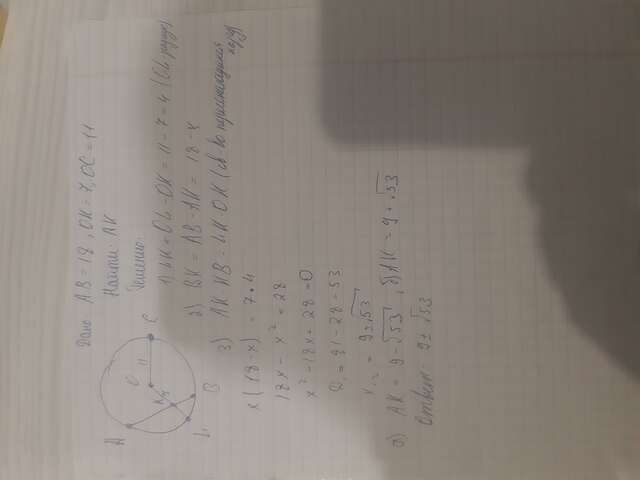 Дано AB = 18, OK = 7, OC = 11
Найти: AK
Решение:
1) LK = OL - OK = 11 - 7 = 4 (OL радиус)
2) BK = AB - AK = 18 - x
3) AK · KB = LK · OK (св-во пересекающихся хорд)
x(18 - x) = 7 · 4
18x - x² = 28
x² - 18x + 28 = 0
D₁ = 81 - 28 = 53
x₁,₂ = 9 ± √53
а) AK = 9 - √53, б) AK = 9 + √53
ответ: 9 ± √53
A
O
11
C
K
7
B
L